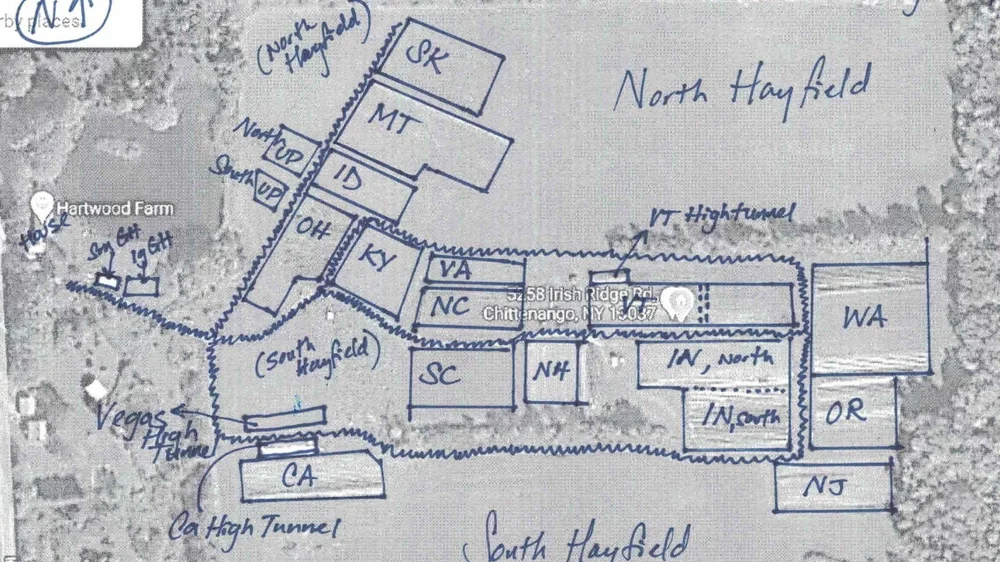 N↑
rby places
(North
Hayfield)
SK
North Hayfield
MT
North
UP
South
UP
ID
Hartwood Farm
House
Sm GH
lg GH
OH
KY
VA
NC
VT Hightunnel
5258 Irish Ridge Rd,
Chittenango, NY 13037
VT
WA
(South
Hayfield)
SC
NH
IN, North
IN, South
OR
Vegas
High
Tunnel
CA
NJ
Ca High Tunnel
South Hayfield